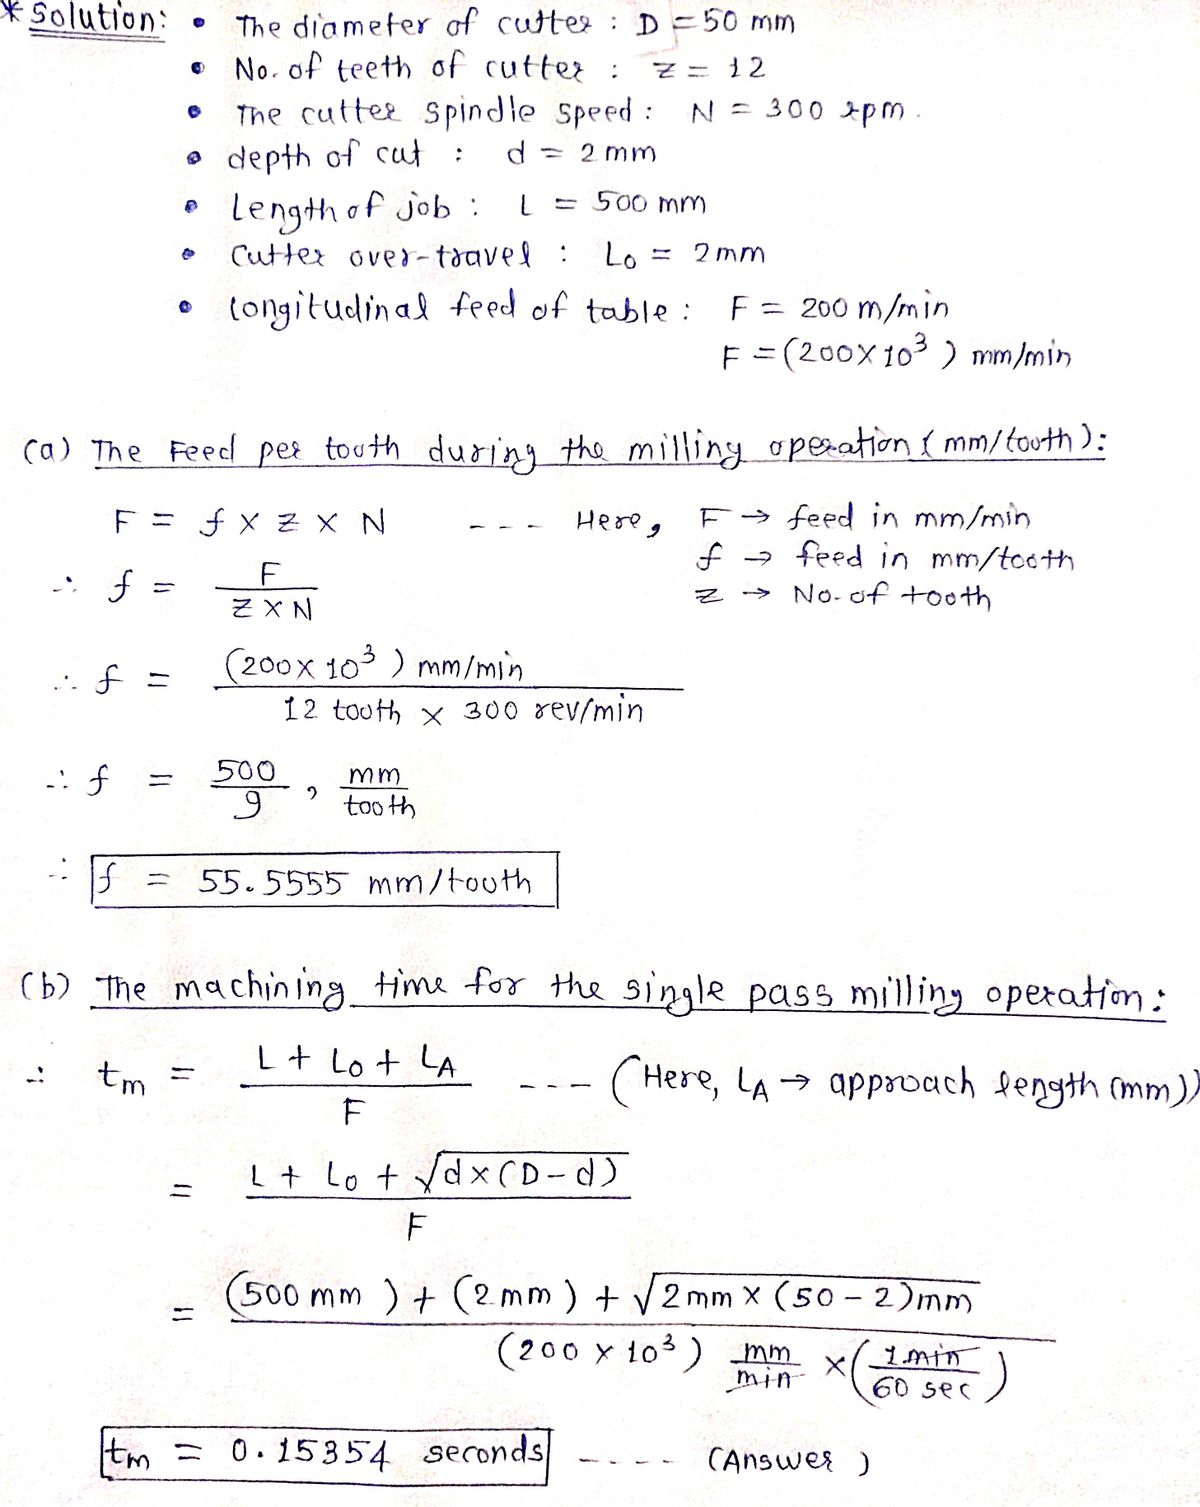 * Solution: • The diameter of cutter : D = 50 mm
• No. of teeth of cutter : z = 12
• The cutter spindle speed : N = 300 rpm.
• depth of cut : d = 2 mm
• Length of job : L = 500 mm
• Cutter over-travel : L₀ = 2mm
• longitudinal feed of table : F = 200 m/min
F = (200 × 10³) mm/min
(a) The Feed per tooth during the milling operation (mm/tooth):
F = f × z × N --- Here, F → feed in mm/min
f → feed in mm/tooth
z → No. of tooth
∴ f = F / (z × N)
∴ f = (200 × 10³) mm/min / (12 tooth × 300 rev/min)
∴ f = 500/9, mm/tooth
∴ f = 55.5555 mm/tooth
(b) The machining time for the single pass milling operation:
∴ tm = (L + L₀ + LA) / F --- (Here, LA → approach length (mm))
= (L + L₀ + √(d×(D-d))) / F
= ((500 mm) + (2 mm) + √(2mm × (50 - 2)mm)) / ((200 × 10³) mm/min × (1 min/60 sec))
tm = 0.15354 seconds ---- (Answer)